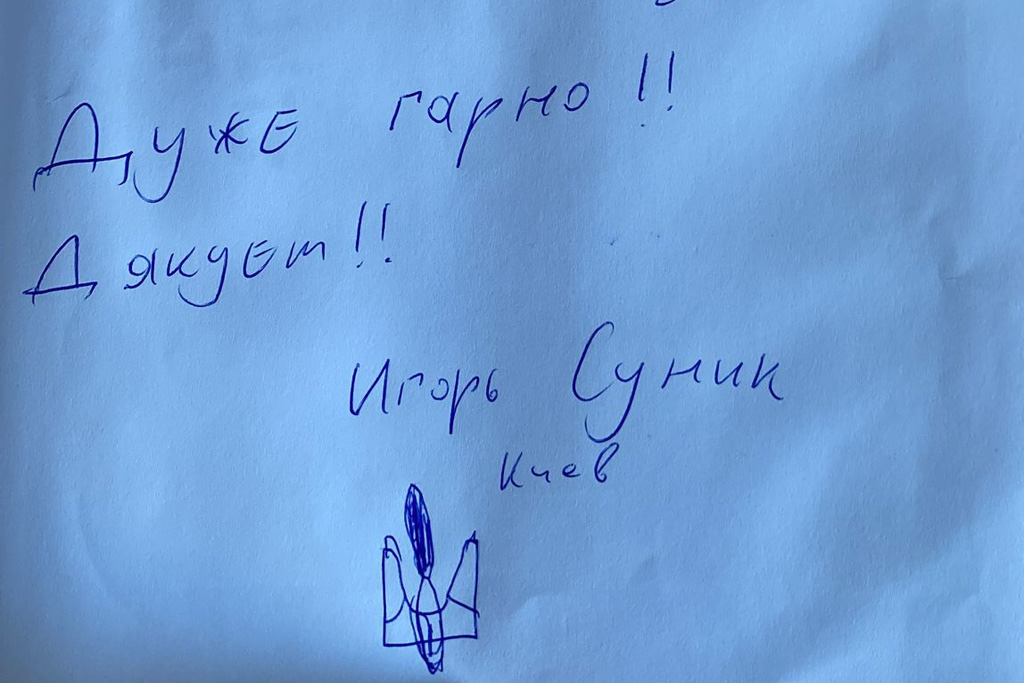 Дуже гарно!!
Дякуем!!
Игорь Суник
Киев